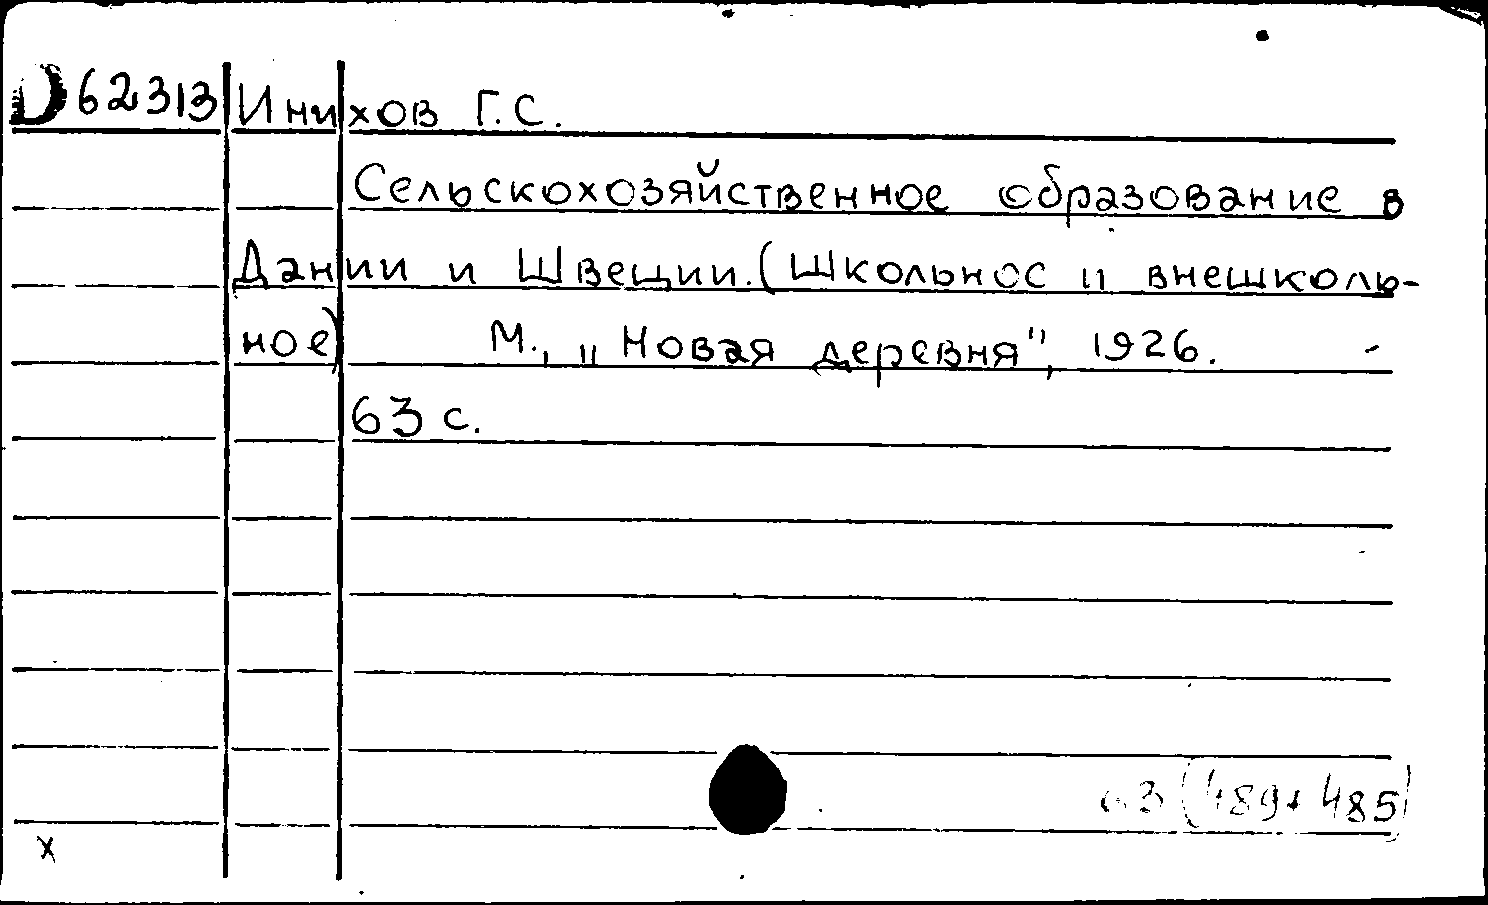 D 62313 Инихов Г.С.
Сельскохозяйственное образование в
Дании и Швеции. (Школьное и внешколь-
ное) М., „Новая деревня", 1926.
63 с.
63 (489+485)
x